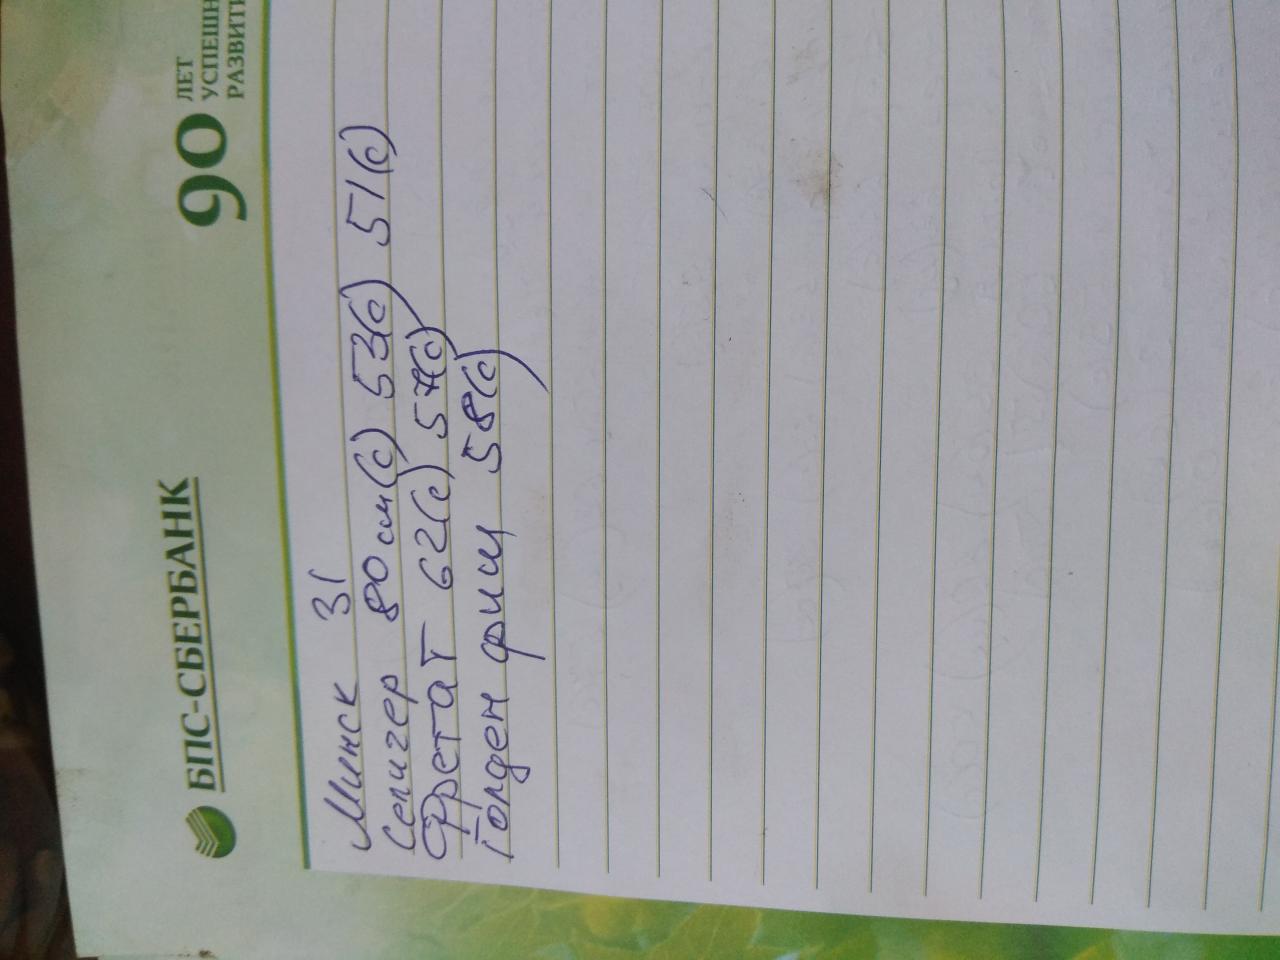 БПС-СБЕРБАНК
90 ЛЕТ
УСПЕШН
РАЗВИТИ
Минск 31
Селигер 80см(с) 53(с) 51(с)
Фрегат 62(с) 57(с)
Голден фиш 58(с)